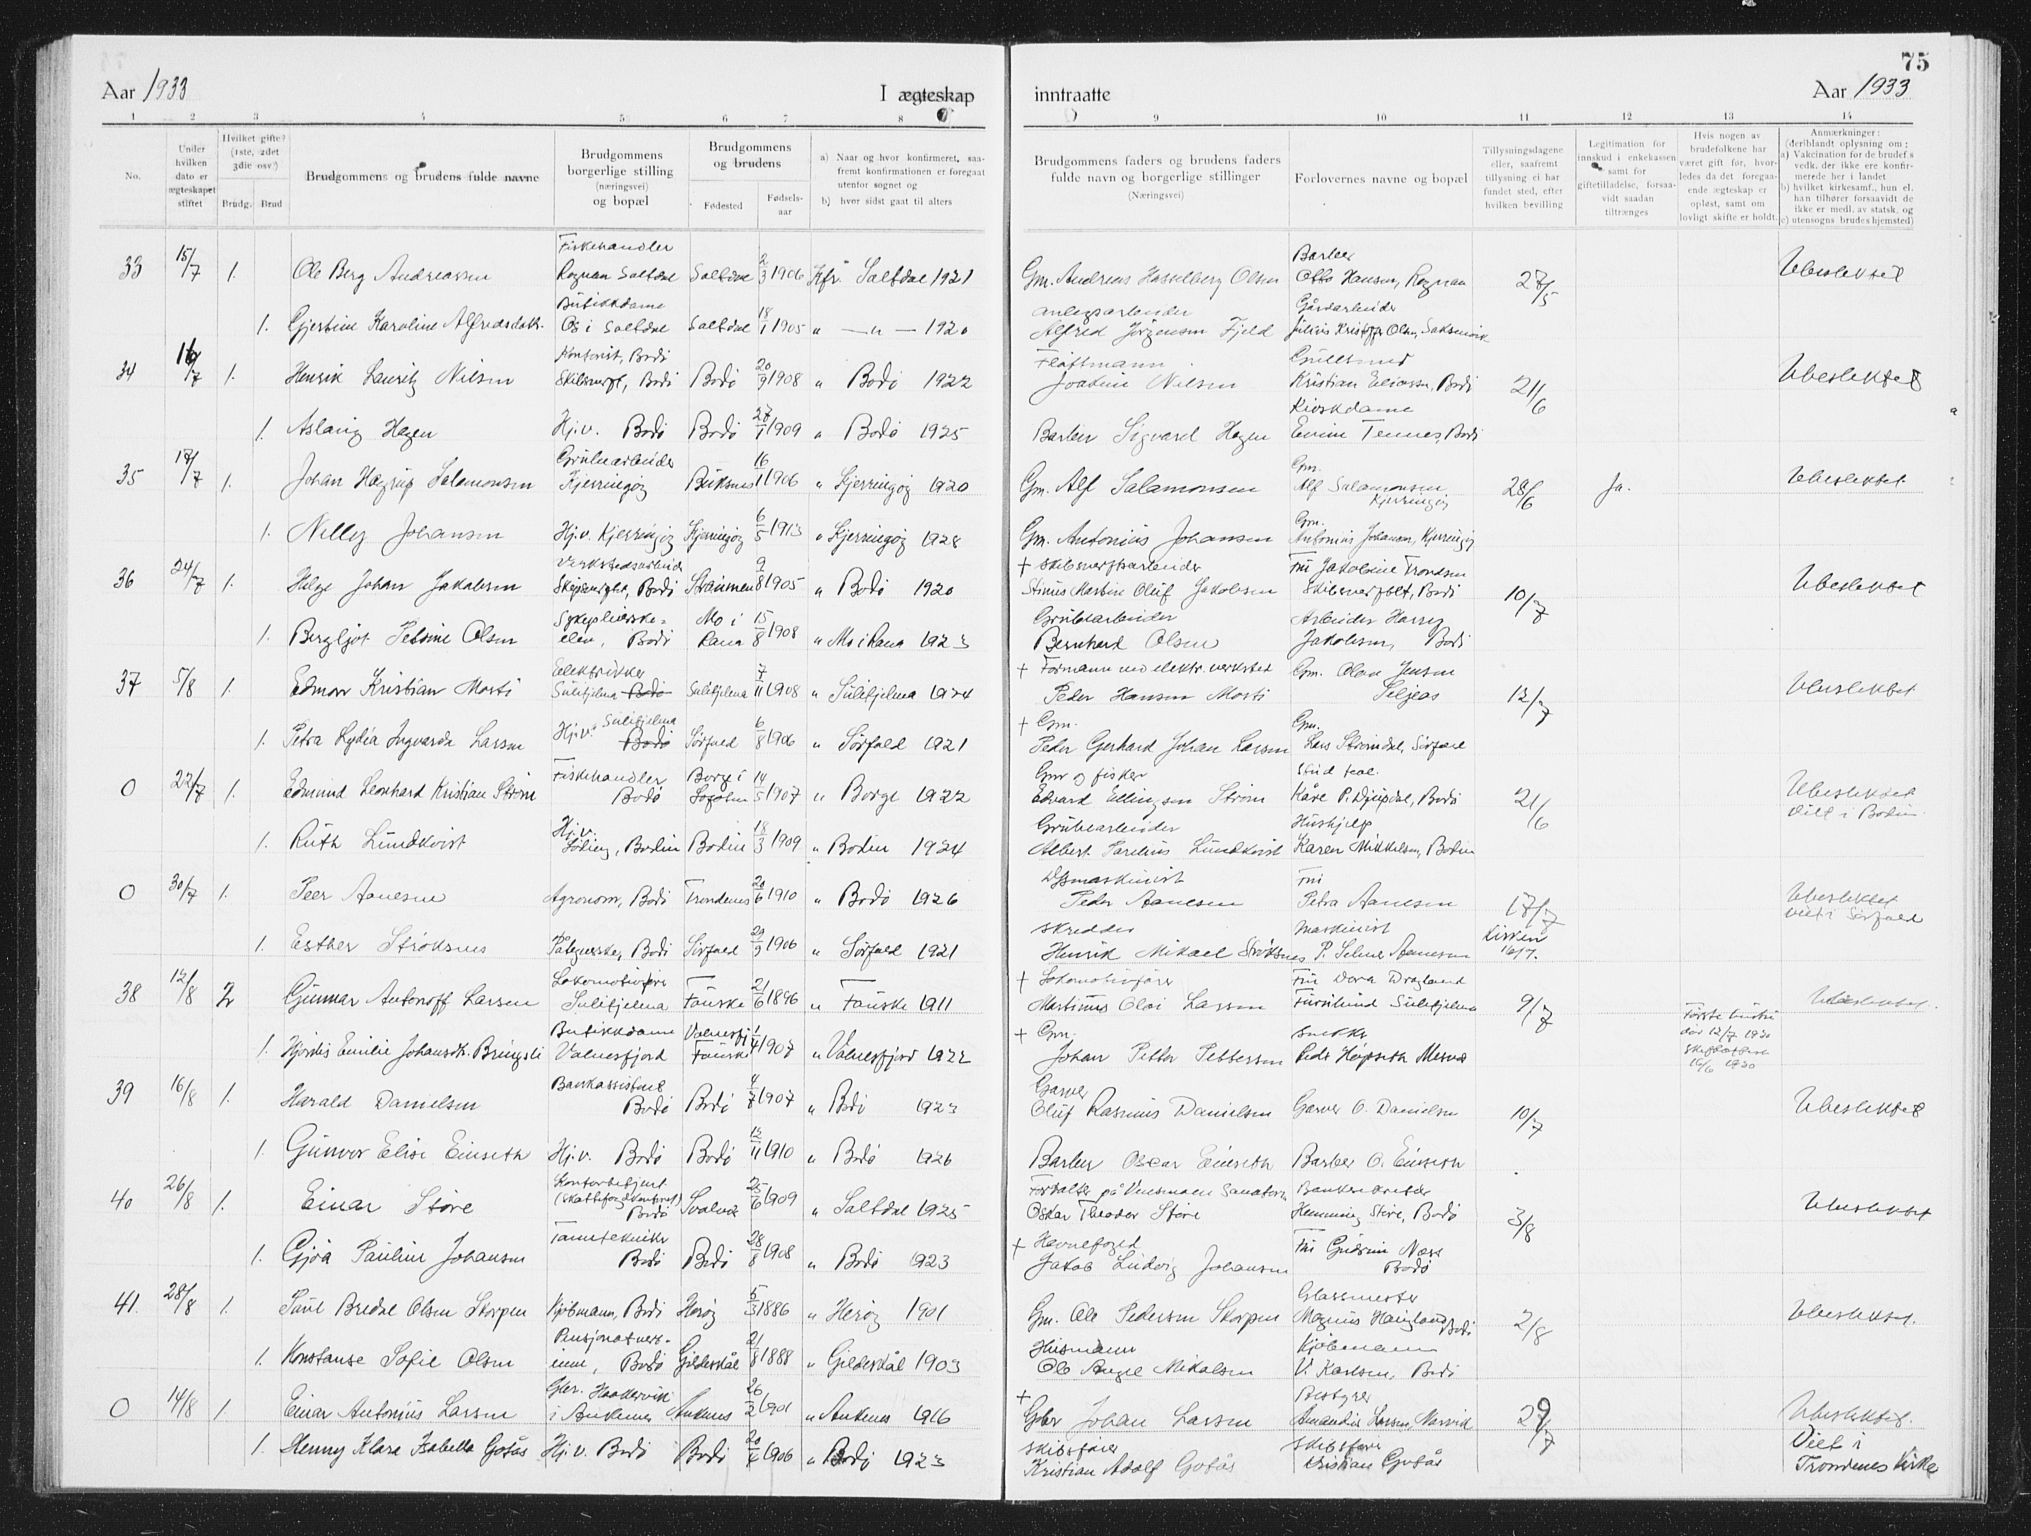 75
Aar 1933
I ægteskap inntraatte
Aar 1933
1 2 3 4 5 6 7 8 9 10 11 12 13 14
No.
Under hvilken dato er ægteskapet stiftet
Hvilket gifte? (1ste, 2det 3die osv.)
Brudg. Brud
Brudgommens og brudens fulde navne
Brudgommens borgerlige stilling (næringsvei) og bopæl
Brudgommens og brudens
Fødested
Fødselsaar
a) Naar og hvor konfirmeret, saafremt konfirmationen er foregaat utenfor sognet og
b) hvor sidst gaat til alters
Brudgommens faders og brudens faders fulde navn og borgerlige stillinger
(Næringsvei)
Forlovernes navne og bopæl
Tillysningsdagene eller, saafremt tillysning ei har fundet sted, efter hvilken bevilling
Legitimation for innskud i enkekassen samt for giftetilladelse, forsaavidt saadan tiltrænges
Hvis nogen av brudefolkene har været gift før, hvorledes da det foregaaende ægteskap er opløst, samt om lovligt skifte er holdt.
Anmærkninger: (deriblandt oplysning om:
a) Vakcination for de brudef s vedk. der ikke ere konfirmerede her i landet
b) hvilket kirkesamf., hun el. han tilhører forsaavidt de ikke er medl. av statsk. og
c) utensogns brudes hjemsted)
33 15/7 1. Ole Berg Andreassen Fiskehandler Rognan Saltdal Saltdal 2/3 1906 Kfr. Saltdal 1921 Gm. Andreas Hasselberg Olsen Barber Otto Hansen, Rognan 27/5 Ubeslektet
1. Gjertine Karoline Alfredsdatr. Butikkdame Os i Saltdal Saltdal 18/1 1905 " — " — 1920 Anlegsarbeider Alfred Jörgensen Fjeld Gårdarbeider Julius Kristoffer Olsen, Saksenvik
34 16/7 1. Henrik Lauritz Nilsen Kontorist, Bodö Skibsverft, Bodö Bodö 20/9 1908 " Bodö 1922 Fløttmann Joakim Nilsen Gullsmed Kristian Eliassen, Bodö 21/6 Ubeslektet
1. Aslaug Hagen Hj.v. Bodö Bodö 27/1 1909 " Bodö 1925 Barber Sigvard Hagen Kioskdame Evine Tennes, Bodö
35 17/7 1. Johan Hagrup Salamonsen Grubearbeider Kjerringøy Buksnes 16/1 1906 " Kjerringøy 1920 Gm. Alf Salamonsen Gm. Alf Salamonsen Kjerringöy 28/6 Ja. Ubeslektet
1. Nelly Johansen Hj.v. Kjerringöy Kjerringöy 6/5 1913 " Kjerringöy 1928 Gm. Antonius Johansen Gm. Antonius Johansen, Kjerringöy
36 24/7 1. Helge Johan Jakobsen Verkstedsarbeider Skipsverftet, Bodö Straumen 9/8 1905 " Bodö 1920 + Skibsverftsarbeider Stinus Martin Oluf Jakobsen Fru Jakobine Trondsen Skibsverftet, Bodö 10/7 Ubeslektet
1. Bergljot Petrine Olsen Sykepleierske-elev, Bodö Mo i Rana 15/8 1908 " Mo i Rana 1923 Grubearbeider Bernhard Olsen Arbeider Harry Jakobsen, Bodö
37 5/8 1. Edmon Kristian Morti Elektrikker Sulitjelma Bodö Sulitjelma 7/11 1908 " Sulitjelma 1924 + Formann ved elektr. verksted Peder Hansen Morti Gm. Olem Jensen Seljeås 12/7 Ubeslektet
1. Petra Lydia Ingvarda Larsen Hj.v. Sulitjelma Bodö Sörfold 6/8 1906 " Sörfold 1921 + Gm. Peder Gerhard Johan Larsen Gm. Lars Strömdal, Sörfold
0 22/7 1. Edmund Leonhard Kristian Ström Fiskehandler Bodö Borge i Lofoten 14/5 1907 " Borge 1922 Gmr og fisker Edvard Ellingsen Ström Stud. teol. Kåre P. Djupdal, Bodö 21/6 Ubeslektet Viet i Bodin
1. Ruth Lundkvist Hj.v. Löding, Bodin Bodin 18/3 1909 " Bodin 1924 Grubearbeider Albert Parelius Lundkvist Hushjelp Karen Mikkelsen, Bodin
0 30/7 1. Peer Aanesen Agronom, Bodö Trondenes 20/6 1910 " Bodö 1926 Maskinist Peder Aanesen Fru Petra Aanesen 17/7 Ubeslektet Viet i Sörfold
1. Esther Ströksnes Bodö Sörfold 29/9 1906 " Sörfold 1921 Skredder Henrik Mikael Ströksnes Maskinist P. Selmer Aanesen Kirken 16/7.
38 12/8 2 Gunnar Antonoff Larsen Lokomotivförer Sulitjelma Fauske 21/6 1896 " Fauske 1911 + Lokomotivförer Martinus Olai Larsen Fru Dora Dragland Furulund Sulitjelma 9/7 Förste hustru död 12/7 1930 16/6 1930 Ubeslektet.
1. Hjördis Emilie Johansdt. Bringsli Butikkdame Valnesfjord Valnesfj. Fauske 1/4 1907 " Valnesfjord 1922 + Gm. Johan Petter Pettersen Snekker Peder Höpseth Mesnes
39 16/8 1. Harald Danielsen Bankassistent Bodö Bodö 4/7 1907 " Bodö 1923 Garver Oluf Rasmus Danielsen Garver O. Danielsen 10/7 Ubeslektet
1. Gunvor Elise Einseth Hj.v. Bodö Bodö 13/11 1910 " Bodö 1926 Barber Oscar Einseth Barber O. Einseth
40 26/8 1. Einar Störe Kontorbetjent (skattefogdkontoret) Bodö Svolvær 25/6 1909 " Saltdal 1925 Forvalter på Vensmoen Sanatorium Oskar Theodor Störe Banksekretær Henning Störe, Bodö 3/8 Ubeslektet
1. Gjöa Pauline Johansen Tannteknikker Bodö Bodö 28/8 1908 " Bodö 1923 + Havnefoged Jakob Ludvig Johansen Fru Gudrun Næss Bodö
41. 28/8 1. Paul Bredal Olsen Skorpen Kjöbmann, Bodö Heröy 5/3 1886 " Heröy 1901 Gm. Ole Pedersen Skorpen Glassmester Magnus Haugland Bodö 2/8 Ubeslektet.
1. Konstanse Sofie Olsen Pensjonatvertinne, Bodö Gildeskål 21/8 1888 " Gildeskål 1903 Husmann Ole Angel Mikalsen Kjöbmann V. Karlsen, Bodö
0 14/8 1. Einar Antonius Larsen Gbr. Haakvik i Ankenes Ankenes 26/2 1901 " Ankenes 1916 + Gbr Johan Larsen Bestyrer Amandus Larsen, Narvik 29/7 Ubeslektet.
1. Henny Klara Isabella Gofås Hj.v. Bodö Bodö 20/6 1906 " Bodö 1923 Skibsförer Kristian Adolf Gofås Skibsförer Kristian Gofås Viet i Trondenes Kirke